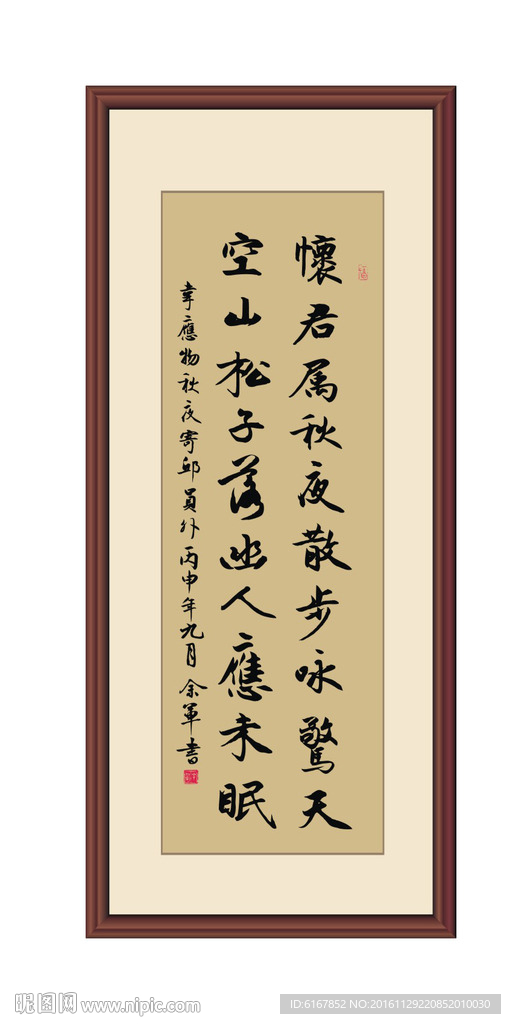 懷君属秋夜散步咏驚天
空山松子落幽人應未眠
韋應物秋夜寄邱員外丙申年九月余軍書
昵图网 www.nipic.com
ID:6167852 NO:20161129220852010030